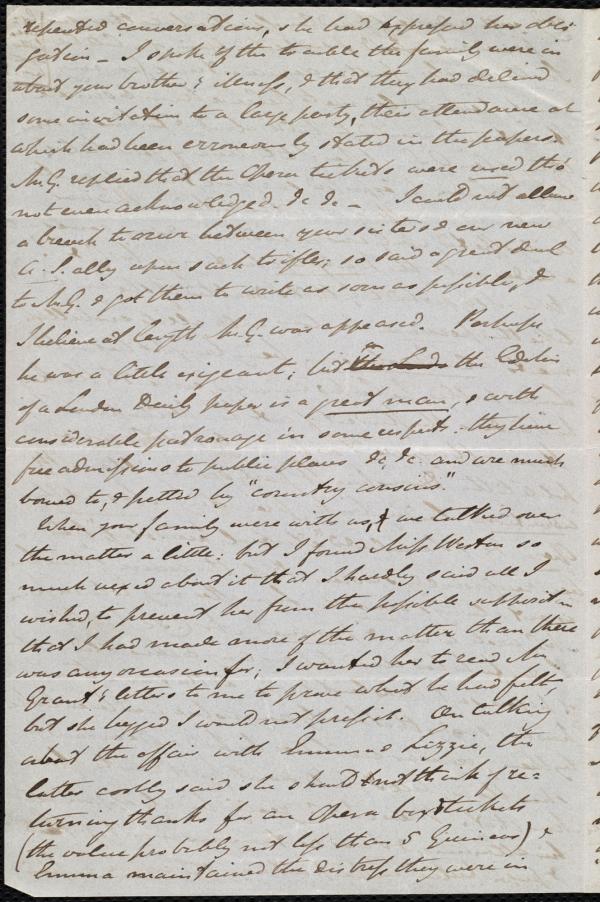 repeated conversations, she had expressed her obli-
gation - I spoke of the trouble the family were in
about your brother's illness, & that they had declined
some invitation to a large party, their attendance at
which had been erroneously stated in the papers.
Mr. G. replied that the Opera tickets were used tho'
not even acknowledged. &c &c - I could not allow
a breach to occur between your sisters & our new
A. S. ally upon such trifles; so said a great deal
to Mr. G. & got them to write as soon as possible, &
I believe at length Mr. G. was appeased. Perhaps
he was a little exigeant; but the Editor
of a London Daily paper is a great man, & with
considerable patronage in some respects. they have
free admissions to public places &c, &c. and are much
bowed to, & petted by "country cousins."
When your family were with us, & we talked over
the matter a little: but I found Miss Weston so
much vexed about it that I hardly said all I
wished, to prevent her from the possible supposit'n
that I had made more of the matter than there
was any occasion for; I wanted her to read Mr
Grant's letters to me to prove what he had felt,
but she begged I would not persist. On talking
about the affair with Emma & Lizzie, the
latter coolly said she should not think of re-
turning thanks for an Opera box tickets
(the value probably not less than 5 Guineas) &
Emma maintained the distress they were in